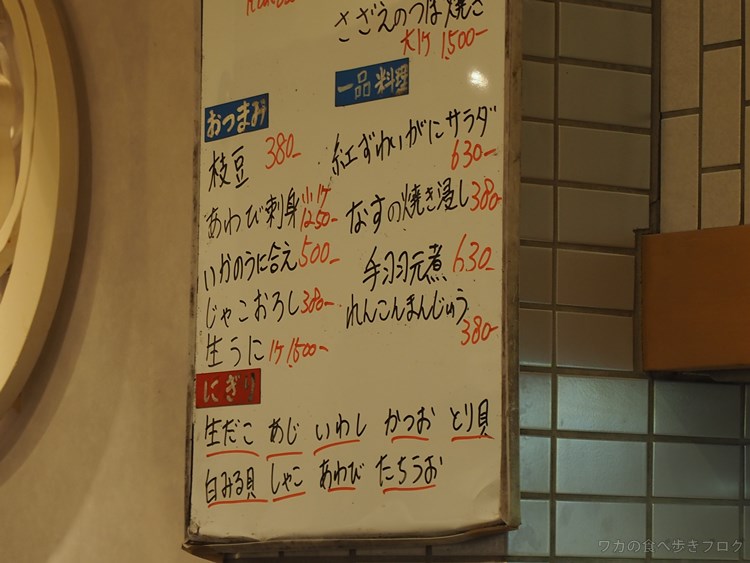 さざえのつぼ焼き
大1ケ 1,500-
おつまみ
枝豆 380-
あわび刺身 小1ケ 1250-
いかのうに合え 500-
じゃこおろし 380-
生うに 1ケ 1,500-
一品料理
紅ずわいがにサラダ
630-
なすの焼き浸し 380-
手羽元煮 630-
れんこんまんじゅう
380-
にぎり
生だこ あじ いわし かつお とり貝
白みる貝 しゃこ あわび たちうお
ワカの食べ歩きブログ